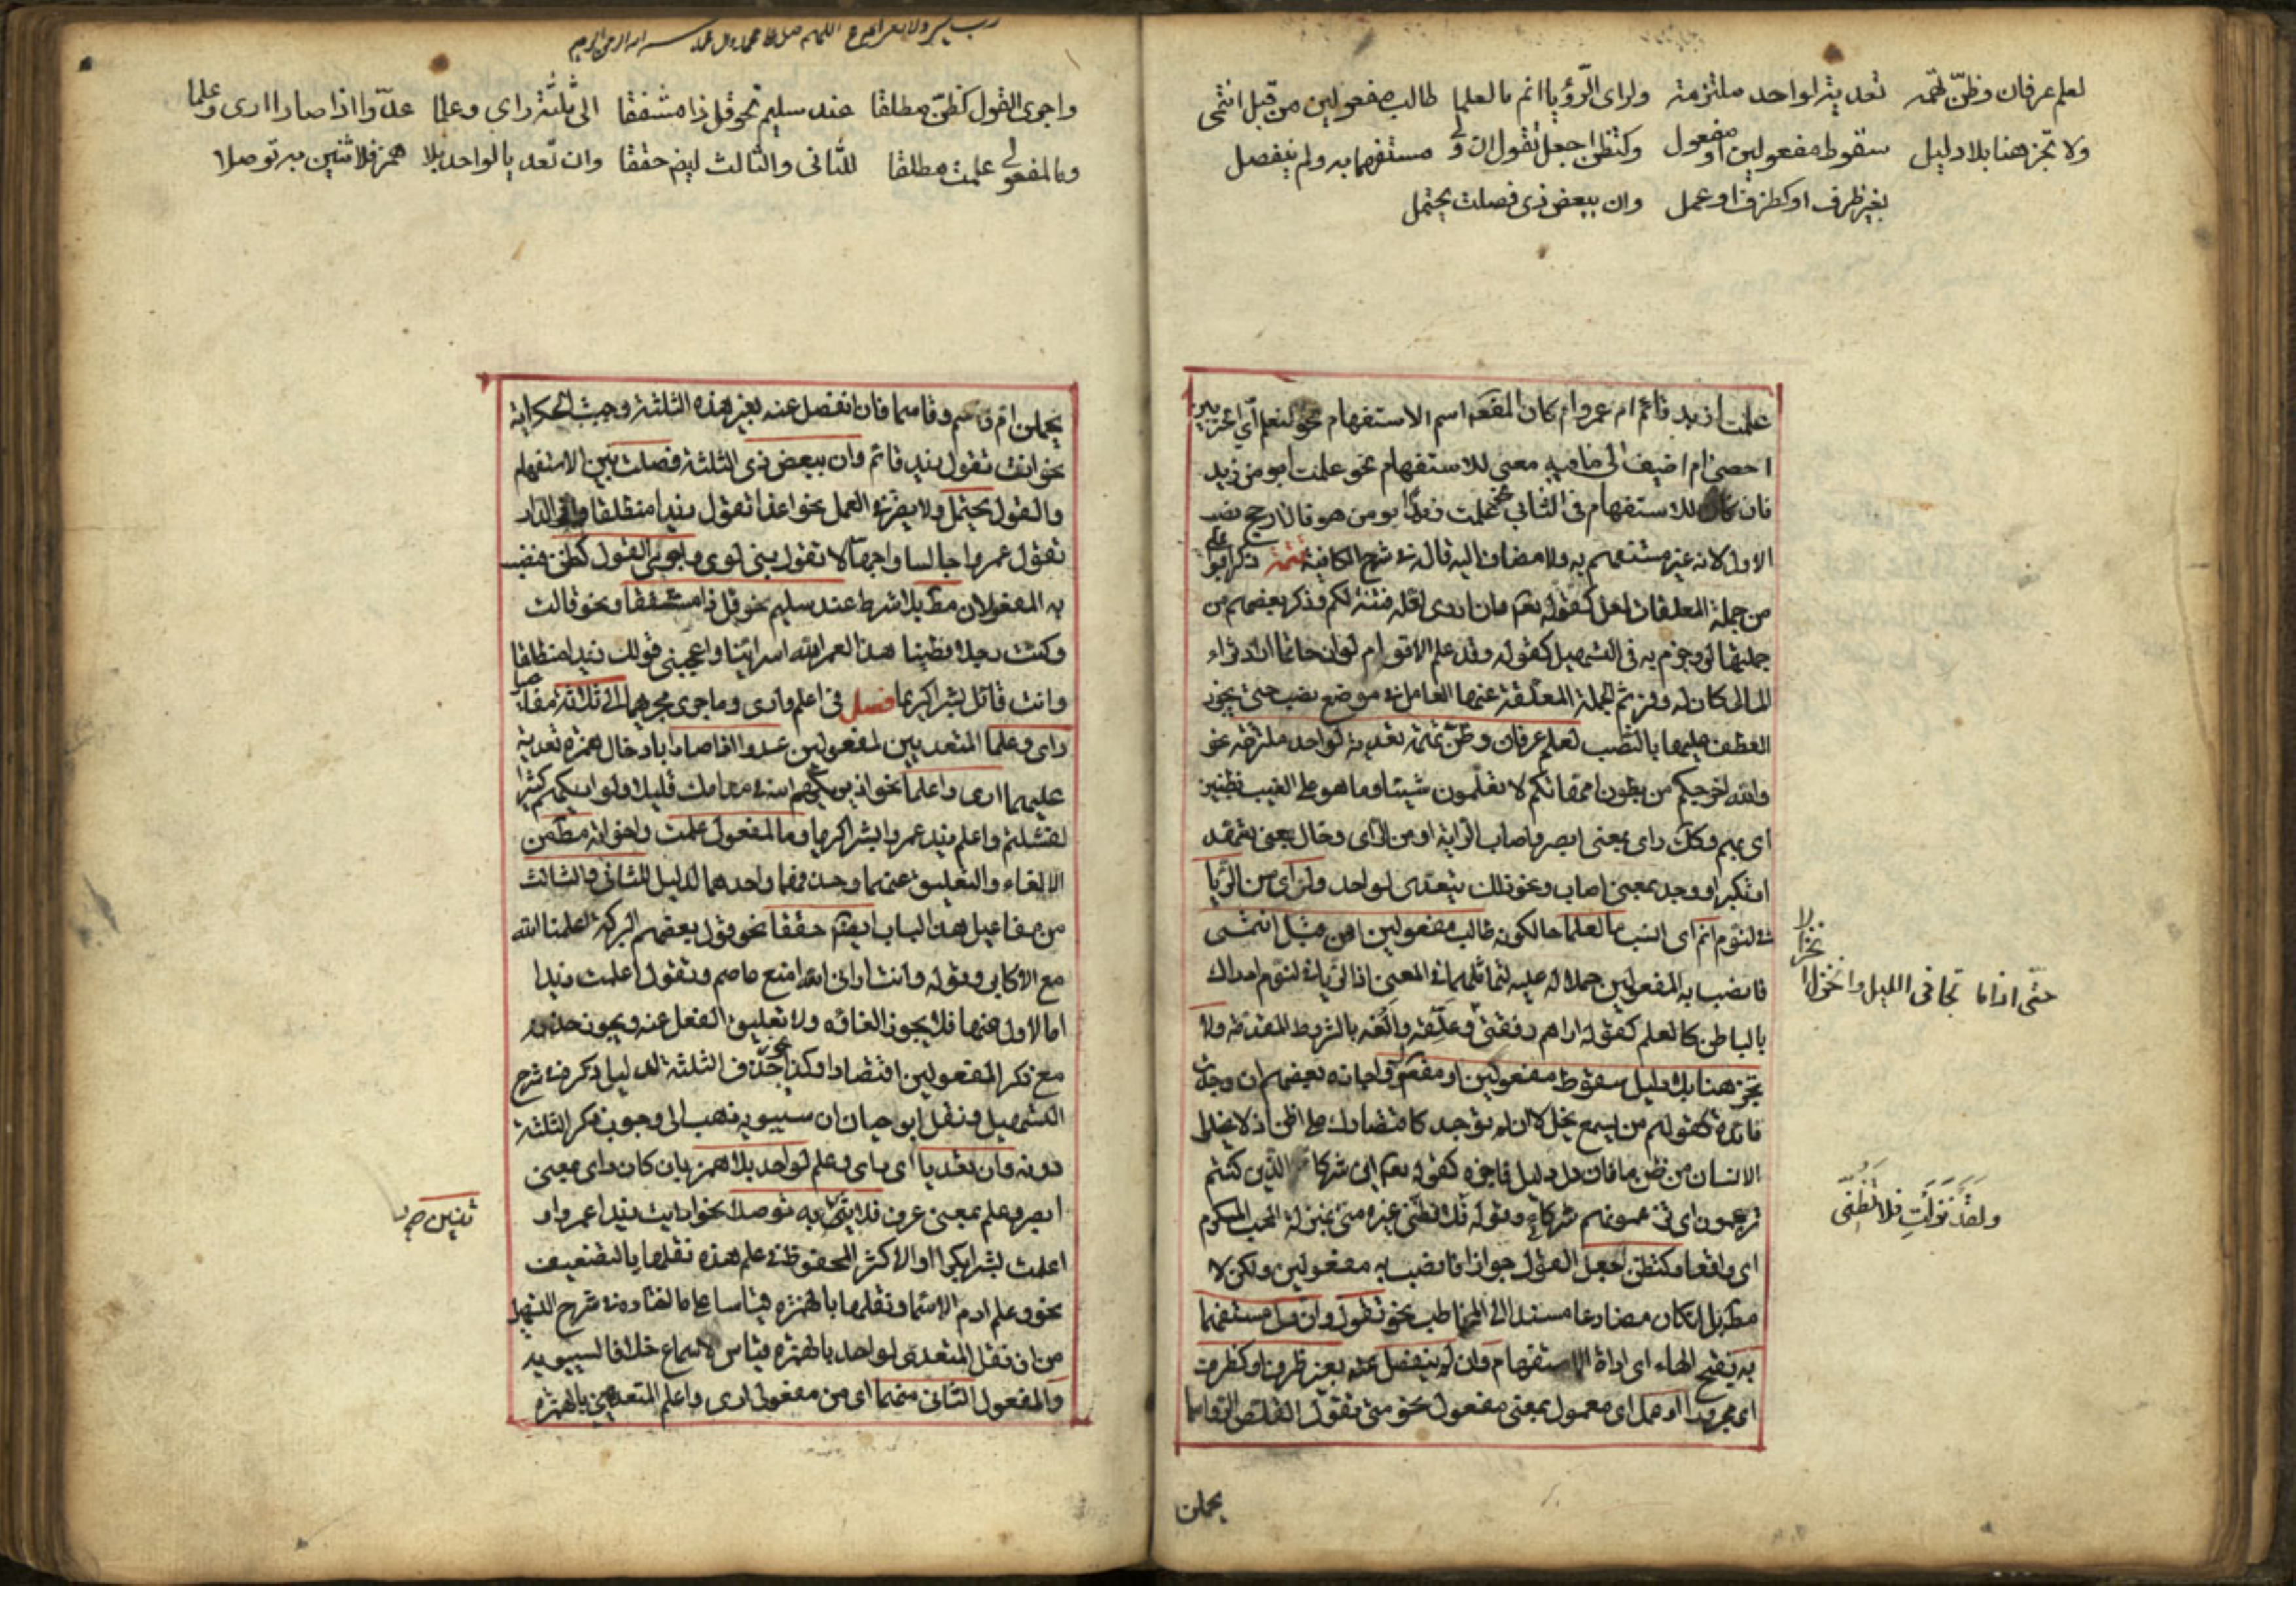 لعلم عرفان وظنّ تهمه تعدية لواحد ملتزمة ولرأى الرّؤيا انم ما لعلما طالب مفعولين من قبل انتمى
ولا تجز هنا بلا دليل سقوط مفعولين او مفعول وكتظن اجعل تقول ان ولي مستفهما به ولم ينفصل
بغير ظرف او كظرف او عمل وان ببعض ذى فصلت يحتمل
علمت ازيد قائم ام عمرو ام كان المفعول اسم الاستفهام نحو لنعلم اّي الحزبين
احصى ام اضيف الى ما فيه معنى للاستفهام نحو علمت ابو من زيد
فان كان للاستفهام فى الثانى نحو علمت زيدا ابو من هو فالارجح نصب
الاول لانه غير مستفهم به ولا مضاف اليه قاله فى شرح الكافية تتمة ذكر ابو على
من جملة المعلقات لعل كقوله تعالى وان ادرى لعله فتنة لكم وذكر بعضهم من
جملتها لو وجزم به فى التسهيل كقوله وقد علم الاقوام لو ان حاتما اراد ثراء
المال كان له وفر ثم الجملة المعلقة عنها العامل فى موضع نصب حتى يجوز
العطف عليها بالنصب لعلم عرفان وظنّ تهمة تعدية لواحد ملتزمه نحو
والله اخرجكم من بطون امهاتكم لا تعلمون شيئا وما هو على الغيب بظنين
اى بمتهم وكذا راى بمعنى ابصر واصاب الراية او من الراى وخال بمعنى تعهد
او تكبر او وجد بمعنى اصاب ونحو ذلك يتعدى لواحد ولرأى من الرّيا
فى النوم انم اى انسب ما لعلما حالكونه طالب مفعولين من قبل انتمى
فانصب به المفعولين حملا له عليه لتماثلهما فى المعنى اذ الرؤيا فى النوم ادراك
بالباطن كالعلم كقوله اراهم رفقتى وعلّقه والغه بالشروط المتقدمة ولا
تجز هنا بلا دليل سقوط مفعولين او مفعول واجازه بعضهم ان وجدت
فائدة كقولهم من يسمع يخل لا ان لم توجد كاقتصارك على اظن اذ لا يخلو
الانسان من ظن ما فان دل دليل فاجزه كقوله تعالى اين شركائى الذين كنتم
تزعمون اى تزعمونهم شركائى وقوله فلا تظنى غيره منى بمنزلة المحب المكرم
اى واقعا وكتظن اجعل القول جوازا فانصب به مفعولين ولكن لا
مطلقا بل ان كان مضارعا مسندا الى المخاطب نحو تقول وان ولى مستفهما
به بفتح الهاء اى اداة الاستفهام وان لم ينفصل عنه بغير ظرف او كظرف
اى مجرور او عمل اى معمول بمعنى مفعول نحو متى تقول القلص الرواسما
حتّى اذا ما تجافى الليل وانخزل انخزالا
ولقد نزلتِ فلا تظنّى
يحملن
رب يسر ولا تعسر اللهم صل على محمد وال محمد بسم الله الرحمن الرحيم
واجرى القول كظنّ مطلقا عند سليم نحو قل ذا مشفقا الى ثلثة راى وعلما عدّوا اذا صارا ارى واعلما
وما لمفعولى علمت مطلقا للثانى والثالث ايضا حققا وان تعديا لواحد بلا همز فلاثنين به توصلا
يحملن ام قاسم وقاسما فان انفصل عنه بغير هذه الثلثة وجبت الحكاية
نحو انت تقول زيد قائم وان ببعض ذى الثلثة فصلت بين الاستفهام
والقول يحتمل ولا يضر فى العمل نحو اغدا تقول زيدا منطلقا وافى الدار
تقول عمروا جالسا واجهالا تقول بنى لوى واجرى القول كظن فنصب
به المفعولان مطلقا بلا شرط عند سليم نحو قل ذا مشفقا ونحو قالت
وكنت رجلا فطينا هذا لعمر الله اسرائينا واعجبنى قولك زيدا منطلقا
وانت قائل بشرا كريما فصل فى اعلم وارى وما جرى مجريهما الى ثلثة مفاعيل
راى وعلما المتعديين لمفعولين عدوا اذا صارا بادخال همزة تعدية
عليهما ارى واعلما نحو اذ يريكهم الله فى منامك قليلا ولو اريكهم كثيرا
لفشلتم واعلم زيد عمروا بشرا كريما وما لمفعولى علمت واخواته مطلقا من
الالغاء والتعليق عنهما وحذفهما واحدهما لدليل للثانى والثالث
من مفاعيل هذا الباب ايضا حققا نحو قول بعضهم البركة اعلمنا الله
مع الاكابر وقوله وانت ارانى الله امنع عاصم وتقول اعلمت زيدا
اما الاول منها فلا يجوز الغائه ولا تعليق الفعل عنه ويجوز حذفه
مع ذكر المفعولين اقتصارا وكذا يجوز حذف الثلثة لدليل ذكره فى شرح
التسهيل ونقل ابو حيان ان سيبويه ذهب الى وجوب ذكر الثلثة
دونه وان تعديا اى راى وعلم لواحد بلا همز بان كان راى بمعنى
ابصر وعلم بمعنى عرف فلاثنين به توصلا نحو ارايت زيدا عمروا و
اعلمت بشرا بكرا والاكثر المحفوظ فى علم هذه نقلها بالتضعيف
نحو وعلم ادم الاسماء ونقلها بالهمزة قياسا على ما اختاره فى شرح التسهيل
من ان نقل المتعدى لواحد بالهمزة قياس لا سماع خلافا لسيبويه
والمفعول الثانى منهما اى من مفعولى ارى واعلم المتعديين بالهمزة
ثنين